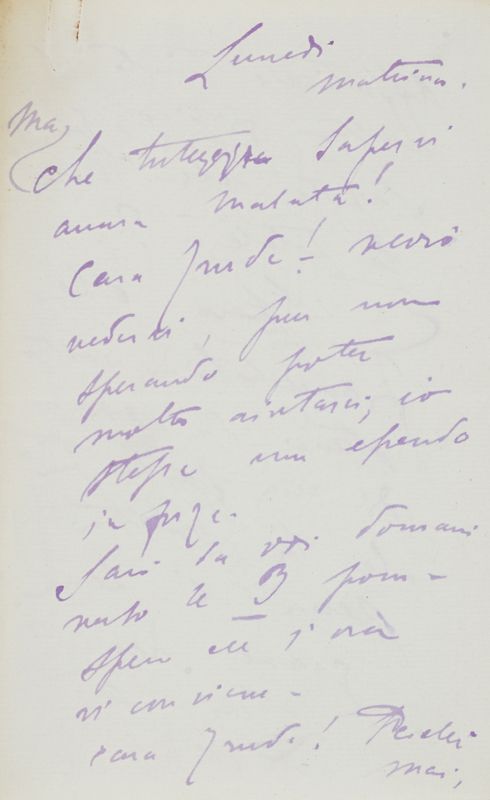 Lunedi
mattina.
Ma,
che tristezza sapervi
ancora malata!
Cara! verrò
vedervi, pur non
sperando poter
molto aiutarvi, io
stessa non essendo
in forze.
Sarò da voi domani
verso le 3
spero l'ora
vi conviene -
cara! Perchè
mai,